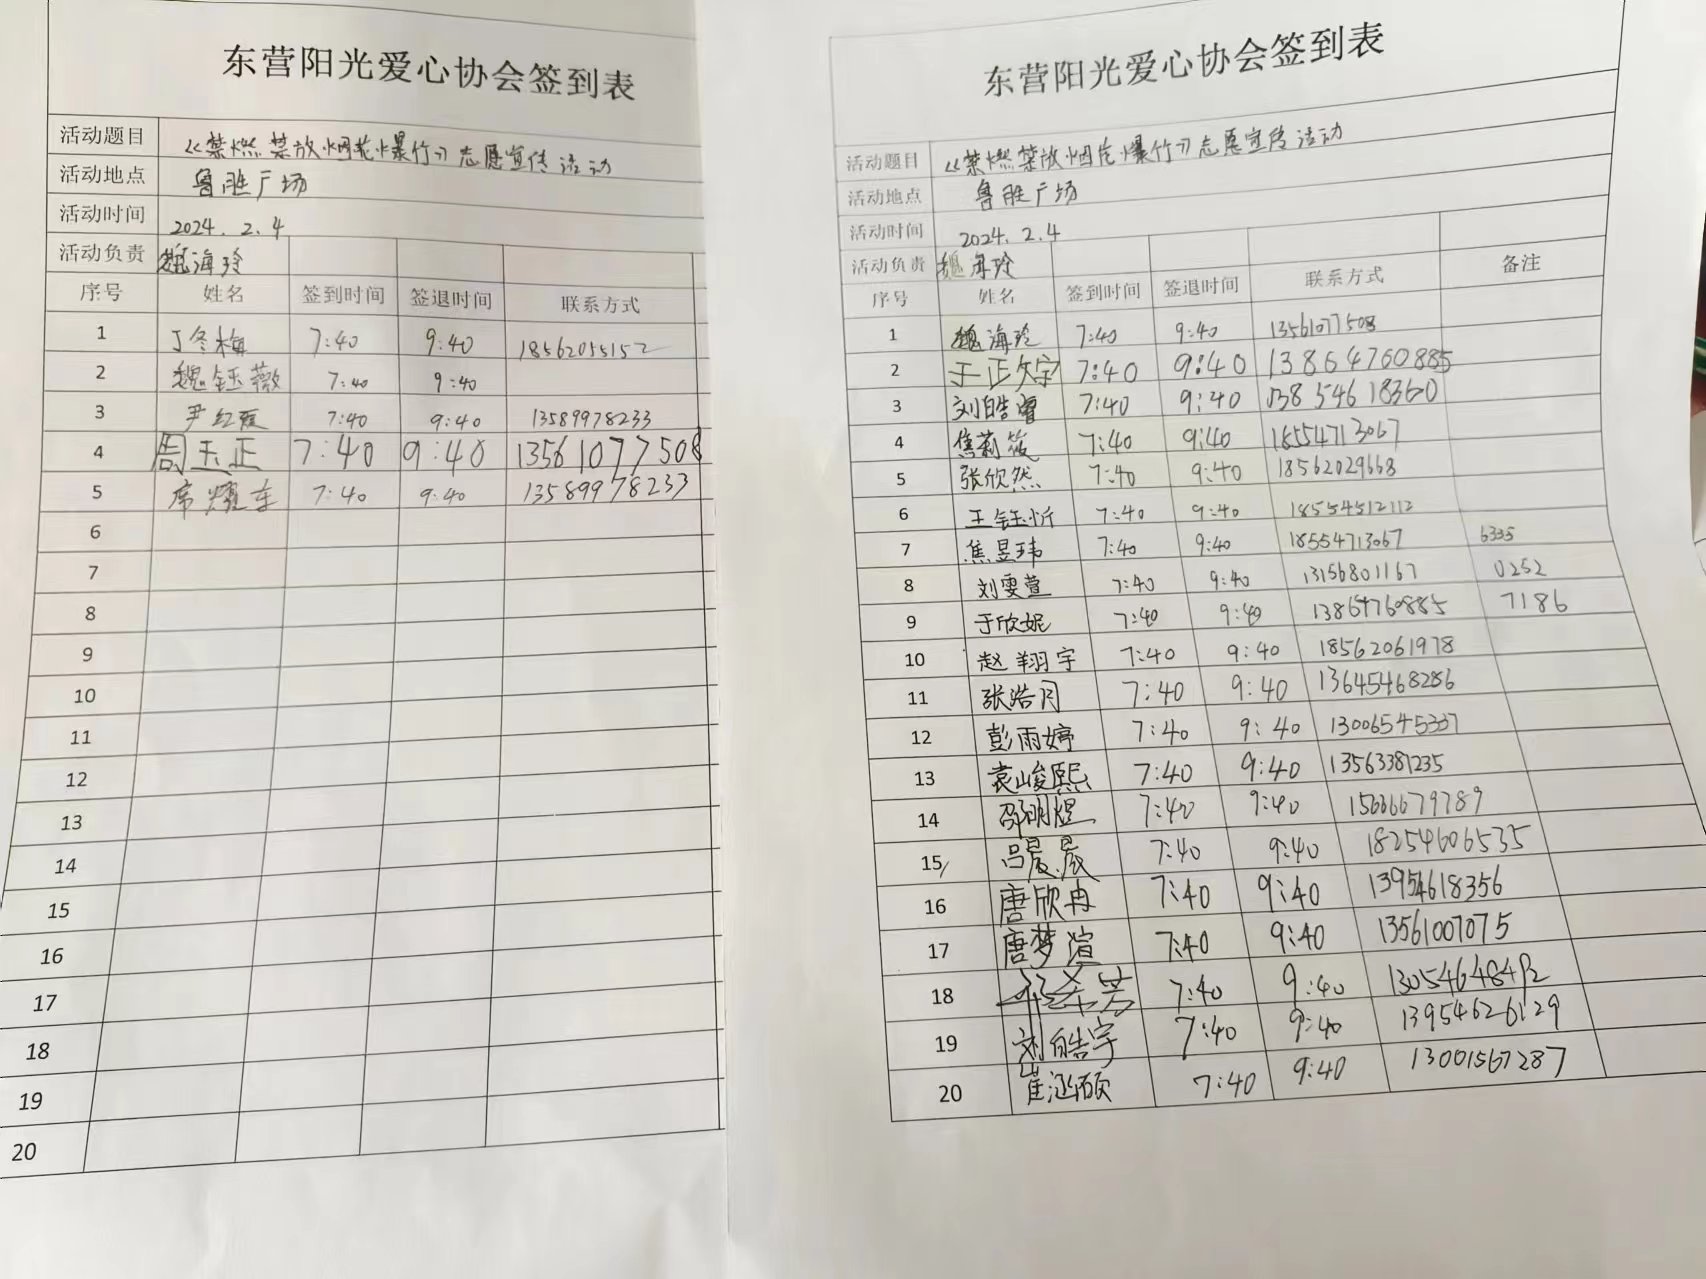 东营阳光爱心协会签到表
活动题目 《禁燃禁放烟花爆竹》志愿宣传活动
活动地点 鲁胜广场
活动时间 2024.2.4
活动负责 魏海玲
序号 姓名 签到时间 签退时间 联系方式
1 丁冬梅 7:40 9:40 18562055152
2 魏钰薇 7:40 9:40
3 尹红霞 7:40 9:40 13589978233
4 周玉正 7:40 9:40 13561077508
5 席耀车 7:40 9:40 13589978233
6
7
8
9
10
11
12
13
14
15
16
17
18
19
20
东营阳光爱心协会签到表
活动题目 《禁燃禁放烟花爆竹》志愿宣传活动
活动地点 鲁胜广场
活动时间 2024.2.4
活动负责 魏海玲
序号 姓名 签到时间 签退时间 联系方式 备注
1 魏海玲 7:40 9:40 13561077508
2 于正文宇 7:40 9:40 13864760885
3 刘皓曾 7:40 9:40 13854618360
4 焦莉筱 7:40 9:40 18554713067
5 张欣然 7:40 9:40 18562029668
6 王钰忻 7:40 9:40 18554512112
7 焦昱玮 7:40 9:40 18554713067 6335
8 刘雯萱 7:40 9:40 13156801167 0252
9 于欣妮 7:40 9:40 13864760885 7186
10 赵翔宇 7:40 9:40 18562061978
11 张浩月 7:40 9:40 13645468286
12 彭雨婷 7:40 9:40 13006545337
13 袁峻熙 7:40 9:40 13563381235
14 邵明煜 7:40 9:40 15666679789
15 吕晨辰 7:40 9:40 18254606535
16 唐欣冉 7:40 9:40 13954618356
17 唐梦渲 7:40 9:40 13561007075
18 7:40 9:40
19 刘皓宇 7:40 9:40 13954626129
20 崔涵硕 7:40 9:40 13001567287